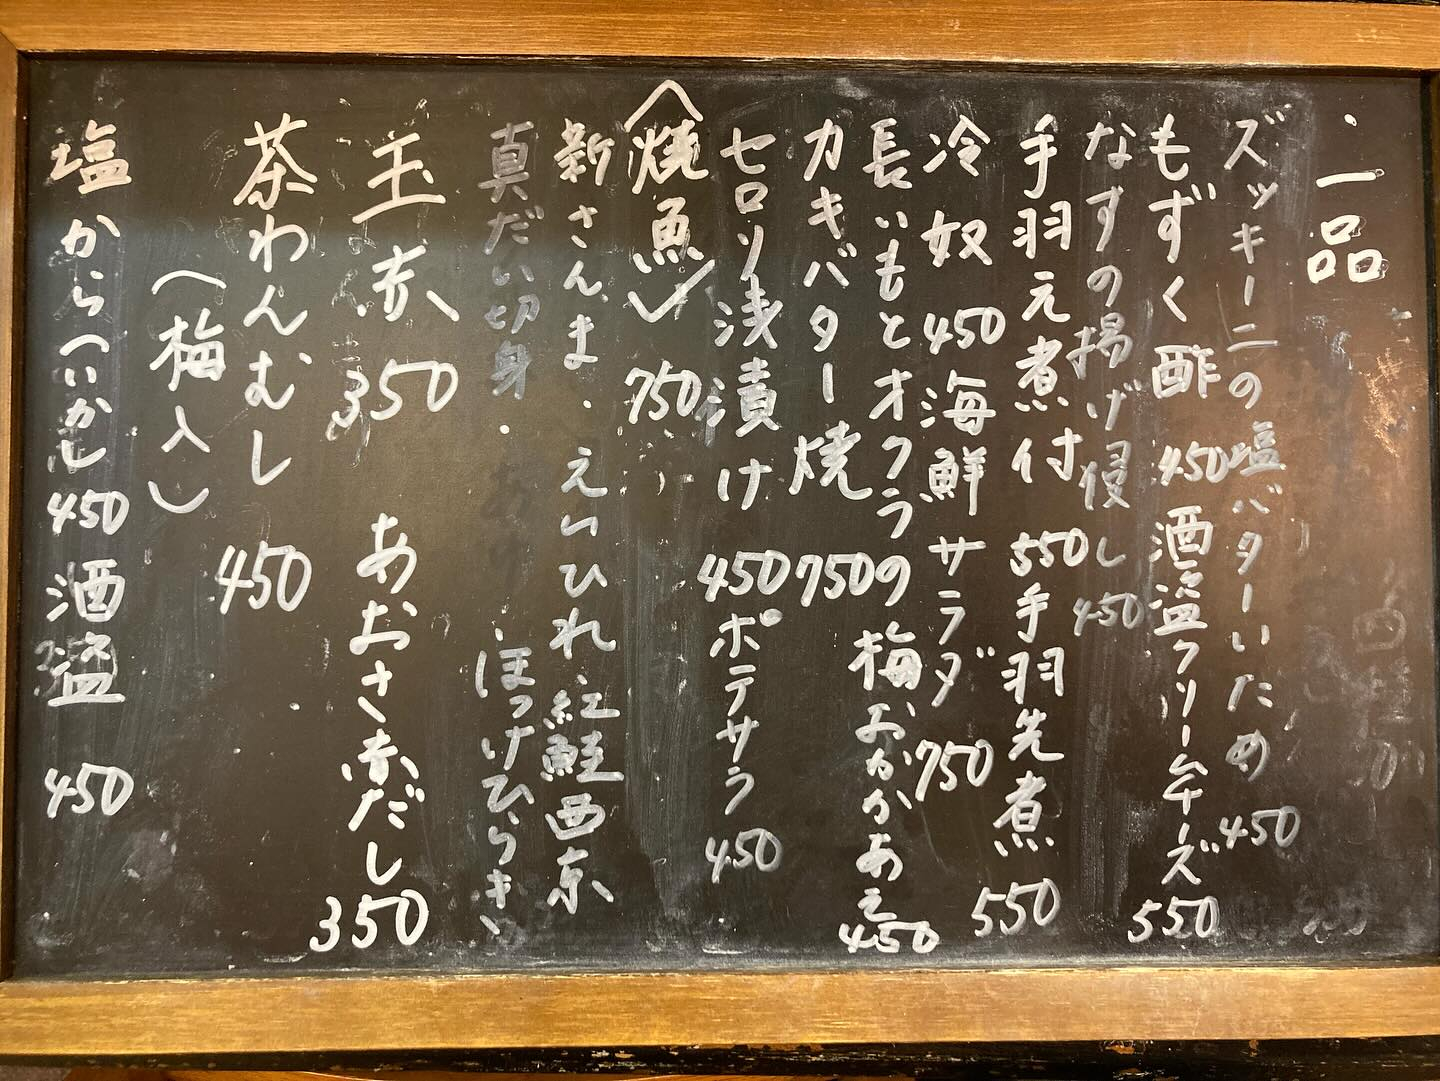 ・一品
ズッキーニの塩バターいため 450
もずく酢 450 酒盗クリームチーズ 550
なすの揚げ浸し 450
手羽元煮付 550 手羽先煮 550
冷奴 450 海鮮サラダ 750
長いもとオクラの梅おかかあえ 450
カキバター焼 750
セロリ浅漬け 450 ポテサラ 450
焼魚 750
新さんま・えいひれ・紅鮭西京
真だい切身・ ・ほっけひらき
玉赤 350 あおさ赤だし 350
茶わんむし 450
(梅入)
塩から(いか) 450 酒盗 450